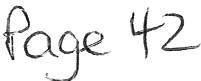 Page 42